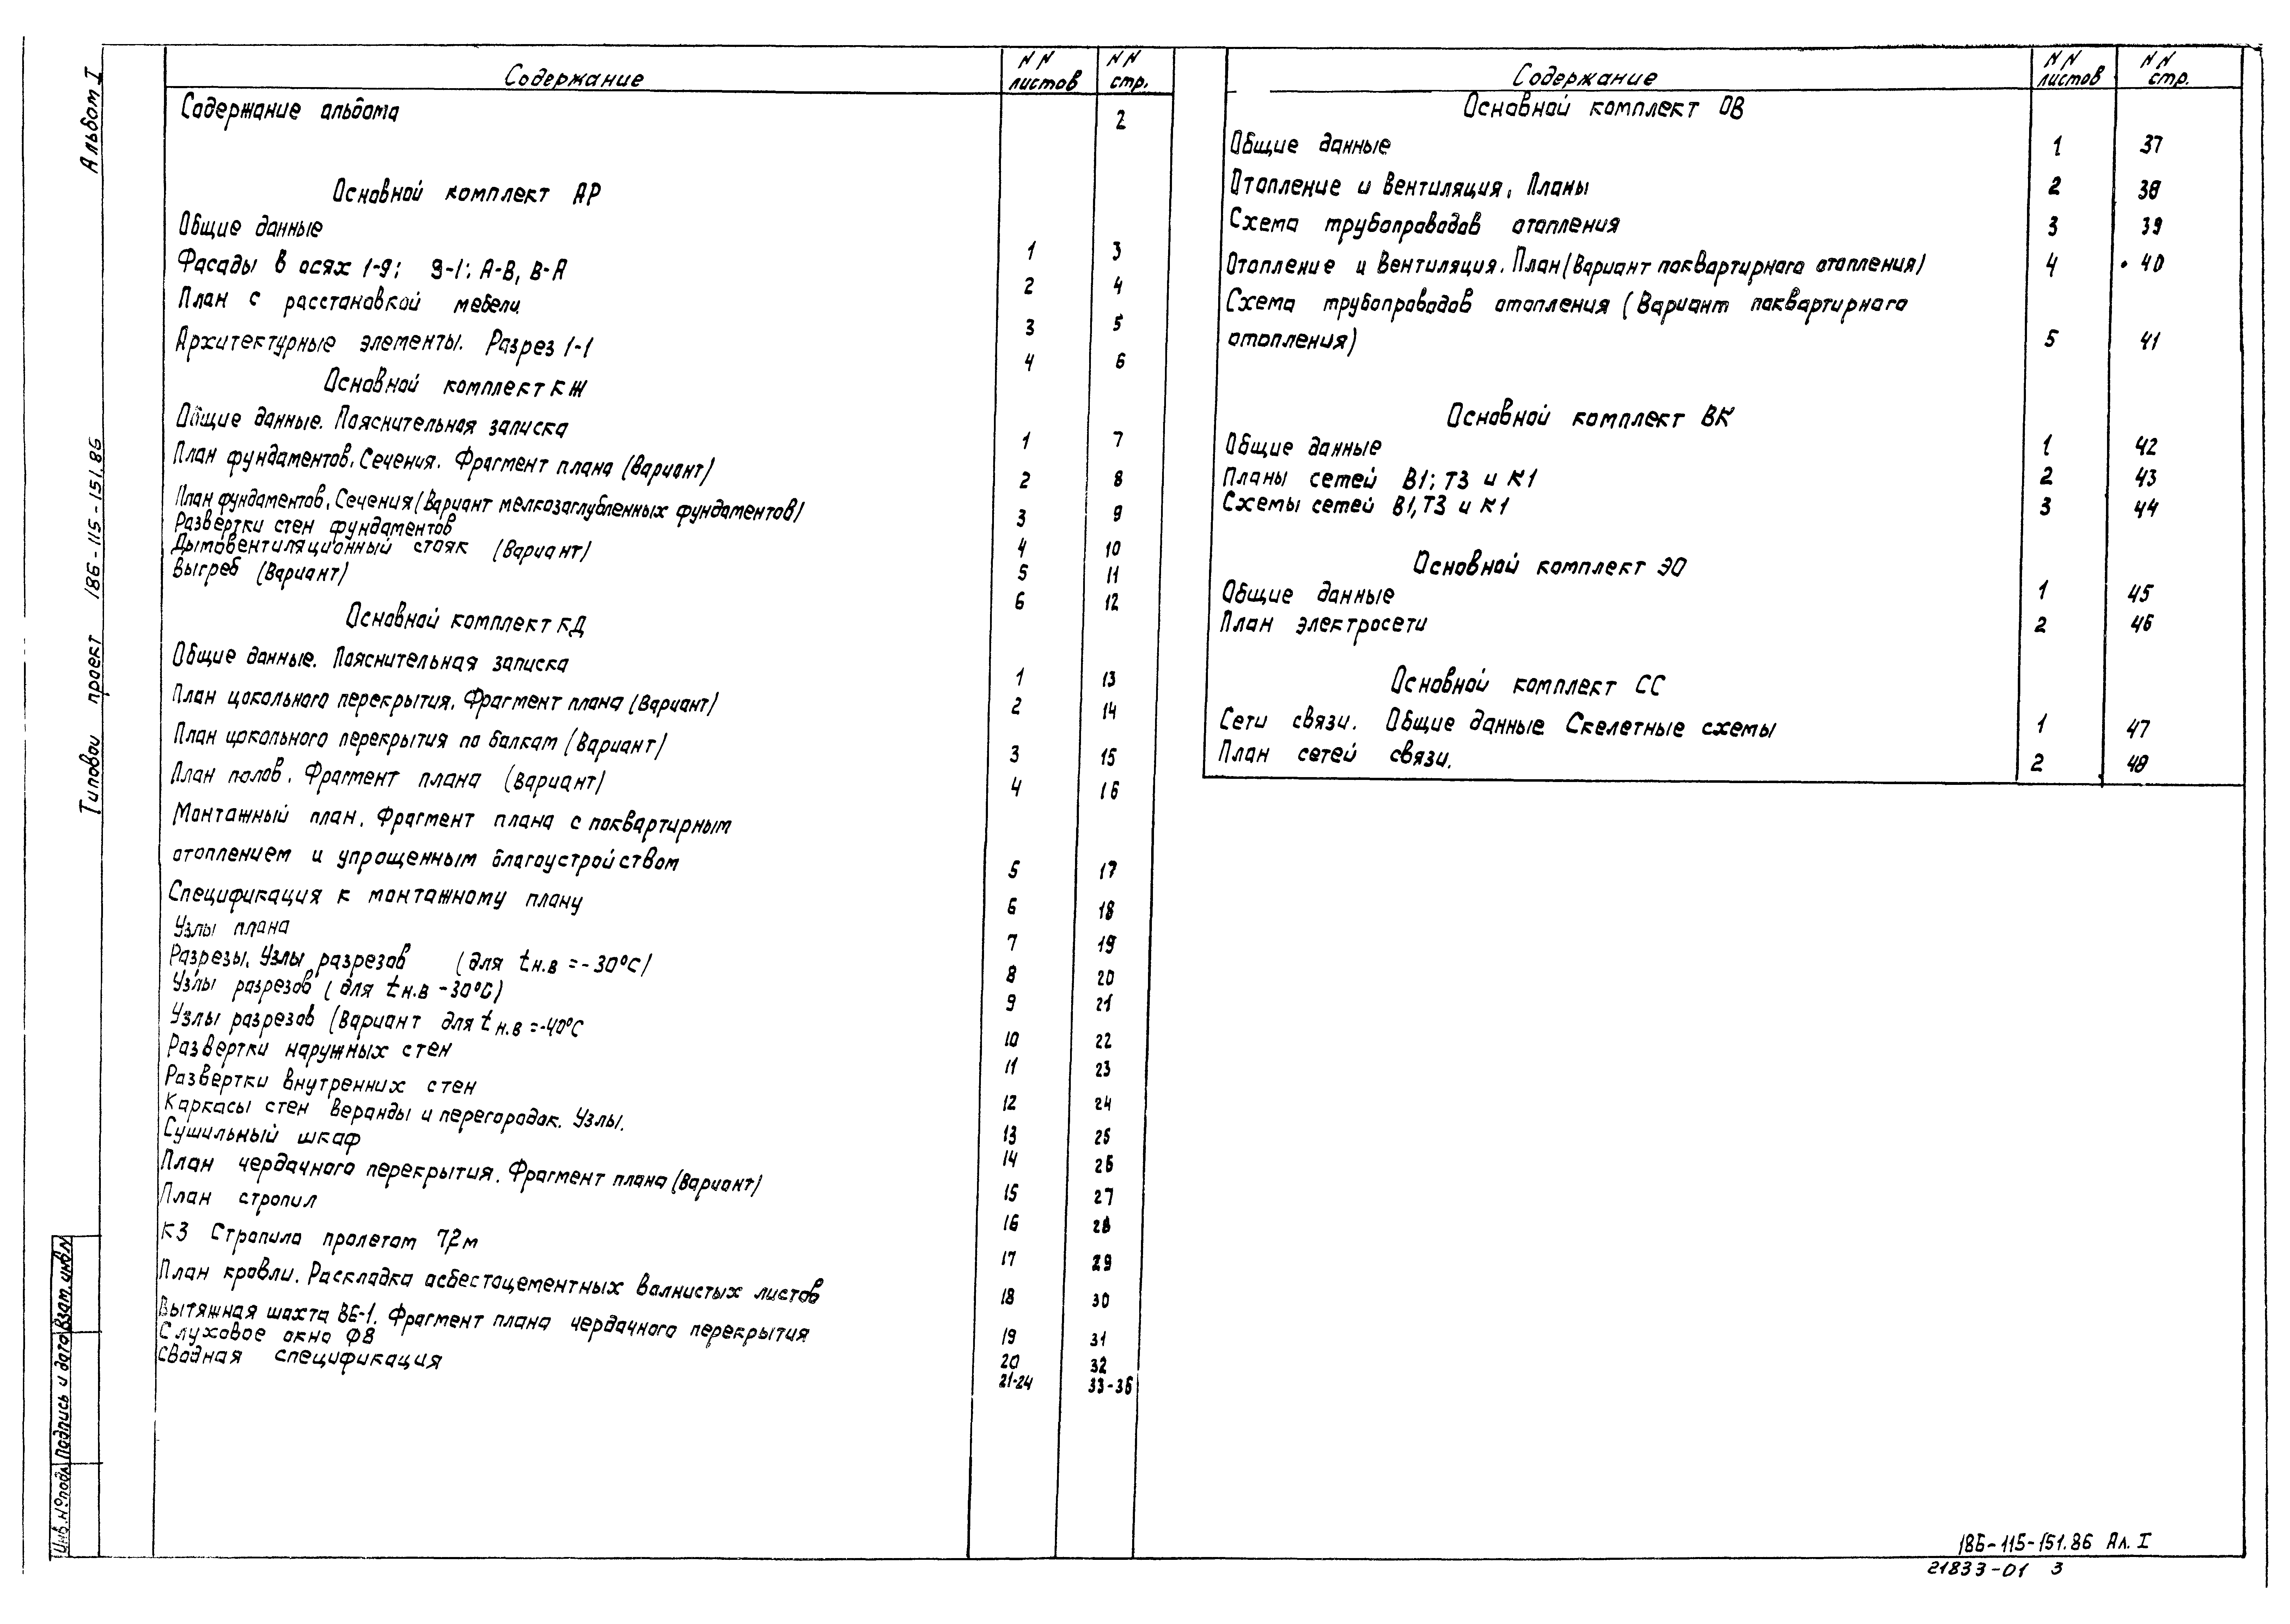 Альбом I
Типовой проект 186-115-151.86
Содержание
NN листов
NN стр.
Содержание альбома 2
Основной комплект АР
Общие данные 1 3
Фасады в осях 1-9; 9-1; А-В, В-А 2 4
План с расстановкой мебели. 3 5
Архитектурные элементы. Разрез 1-1 4 6
Основной комплект КЖ
Общие данные. Пояснительная записка 1 7
План фундаментов. Сечения. Фрагмент плана (Вариант) 2 8
План фундаментов. Сечения (Вариант мелкозаглубленных фундаментов) 3 9
Развертки стен фундаментов 4 10
Дымовентиляционный стояк (Вариант) 5 11
Выгреб (Вариант) 6 12
Основной комплект КД
Общие данные. Пояснительная записка 1 13
План цокольного перекрытия. Фрагмент плана (Вариант) 2 14
План цокольного перекрытия по балкам (Вариант) 3 15
План полов. Фрагмент плана (Вариант) 4 16
Монтажный план. Фрагмент плана с поквартирным
отоплением и упрощенным благоустройством 5 17
Спецификация к монтажному плану 6 18
Узлы плана 7 19
Разрезы. Узлы разрезов (для tн.в =-30°С) 8 20
Узлы разрезов (для tн.в -30°С) 9 21
Узлы разрезов (Вариант для tн.в =-40°С 10 22
Развертки наружных стен 11 23
Развертки внутренних стен 12 24
Каркасы стен веранды и перегородок. Узлы. 13 25
Сушильный шкаф 14 26
План чердачного перекрытия. Фрагмент плана (Вариант) 15 27
План стропил 16 28
К3 Стропила пролетом 7,2м 17 29
План кровли. Раскладка асбестоцементных волнистых листов 18 30
Вытяжная шахта ВЕ-1. Фрагмент плана чердачного перекрытия 19 31
Слуховое окно Ф8 20 32
Сводная спецификация 21-24 33-36
Содержание
NN листов
NN стр.
Основной комплект ОВ
Общие данные 1 37
Отопление и вентиляция. Планы 2 38
Схема трубопроводов отопления 3 39
Отопление и вентиляция. План (Вариант поквартирного отопления) 4 40
Схема трубопроводов отопления (Вариант поквартирного
отопления) 5 41
Основной комплект ВК
Общие данные 1 42
Планы сетей В1; Т3 и К1 2 43
Схемы сетей В1, Т3 и К1 3 44
Основной комплект ЭО
Общие данные 1 45
План электросети 2 46
Основной комплект СС
Сети связи. Общие данные Скелетные схемы 1 47
План сетей связи. 2 48
Инв.№подл Подпись и дата Взам.инв.N
186-115-151.86 Ал. I
21833-01 3